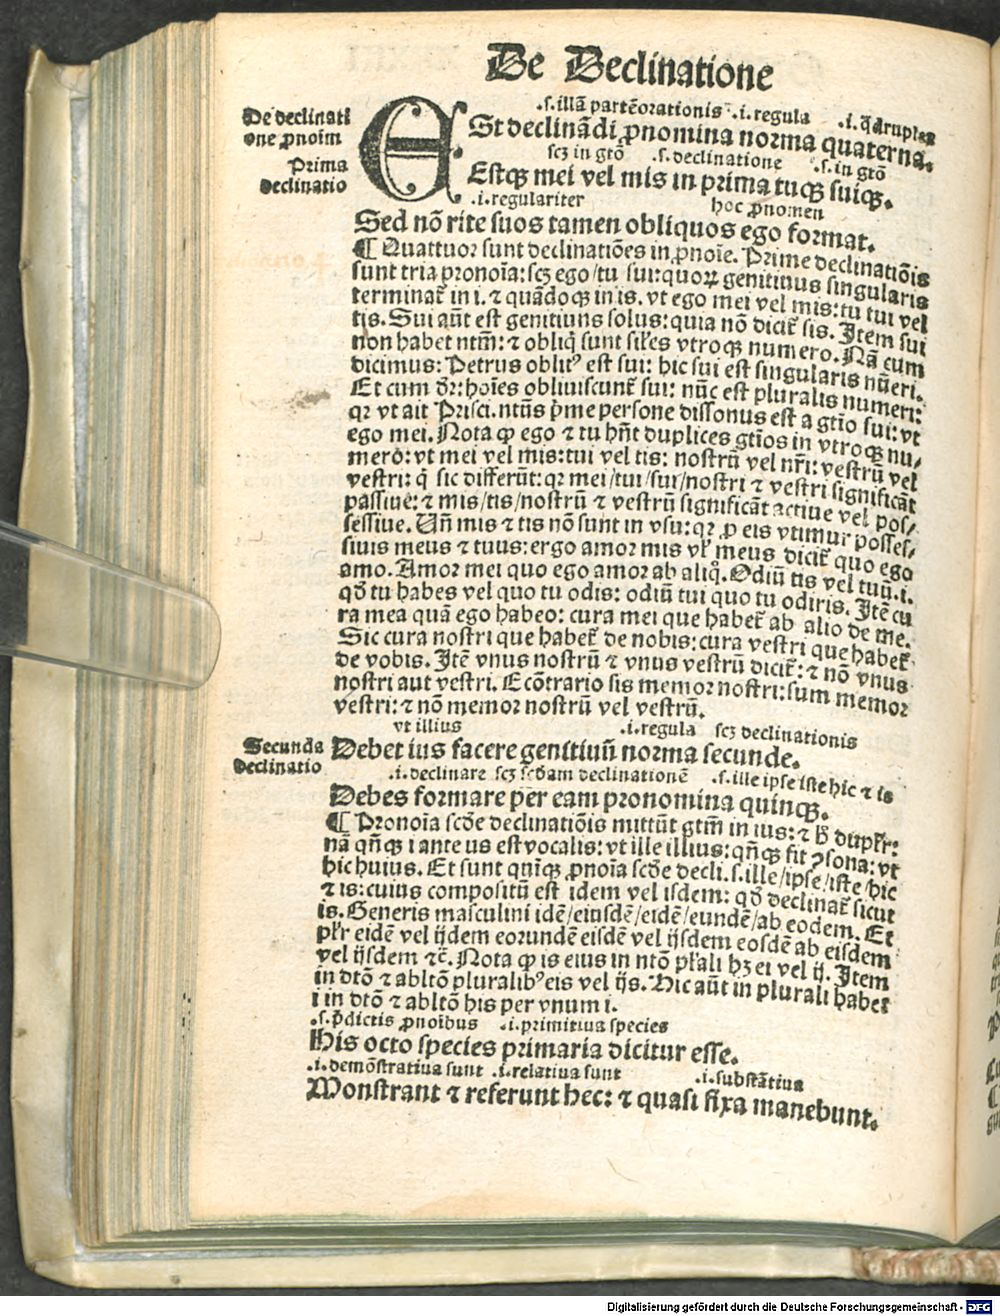 De Declinatione
.s. illā partē orationis .i. regula .i. q̄druplex
De declinati
one ꝓnoīm
Prima
declinatio
ESt declinādi ꝓnomina norma quaterna.
scꝫ in gtō .s. declinatione .s. in gtō
Estqꝫ mei vel mis in prima tuqꝫ suiqꝫ.
.i. regulariter hoc ꝓnomen
Sed nō rite suos tamen obliquos ego format.
¶ Quattuor sunt declinatiōes in ꝓnoīe. Prime declinatiōis
sunt tria pronoīa: scꝫ ego/tu sui: quoꝝ genitiuus singularis
terminat᷑ in i. ⁊ quādoqꝫ in is. vt ego mei vel mis: tu tui vel
tis. Sui aūt est genitiuns solus: quia nō dicit᷑ sis. Item sui
non habet ntm̄: ⁊ obliq̄ sunt sil̄es vtroqꝫ numero. Nā cum
dicimus: Petrus oblitꝰ est sui: hic sui est singularis nūeri.
Et cum dr̄: hoīes obliuiscunt᷑ sui: nūc est pluralis numeri:
qꝛ vt ait Prisci. ntūs pͥme persone dissonus est a gtīo sui: vt
ego mei. Nota ꝙ ego ⁊ tu hn̄t duplices gtīos in vtroqꝫ nu/
mero: vt mei vel mis: tui vel tis: nostrū vel nr̄i: vestrū vel
vestri: q̄ sic differūt: qꝛ mei/tui/sui/nostri ⁊ vestri significāt
passiue: ⁊ mis/tis/nostrū ⁊ vestrū significāt actiue vel pos/
sessiue. Un̄ mis ⁊ tis nō sunt in vsu: qꝛ ꝓ eis vtimur posses/
siuis meus ⁊ tuus: ergo amor mis vl̓ meus dicit᷑ quo ego
amo. Amor mei quo ego amor ab aliq̊. Odiū tis vel tuū .i.
qđ tu habes vel quo tu odis: odiū tui quo tu odiris. Itē cu
ra mea quā ego habeo: cura mei que habet᷑ ab alio de me.
Sic cura nostri que habet᷑ de nobis: cura vestri que habet᷑
de vobis. Itē vnus nostrū ⁊ vnus vestrū dicit᷑: ⁊ nō vnus
nostri aut vestri. E cōtrario sis memor nostri: sum memor
vestri: ⁊ nō memor nostrū vel vestrū.
vt illius .i. regula scꝫ declinationis
Secunda
declinatio
Debet ius facere genitiuū norma secunde.
.i. declinare scꝫ scđam declinationē .s. ille ipse iste hic ⁊ is
Debes formare per eam pronomina quinqꝫ.
¶ Pronoīa scđe declinatiōis mittūt gtm̄ in ius: ⁊ hͦ duplr̄:
nā qn̄qꝫ i ante us est vocalis: vt ille illius: qn̄qꝫ fit ꝯsona: vt
hic huius. Et sunt quīqꝫ ꝓnoīa scđe decli. s. ille/ipse/iste/hic
⁊ is: cuius compositū est idem vel isdem: qđ declinat᷑ sicut
is. Generis masculini idē/eiusdē/eidē/eundē/ab eodem. Et
pl̓r eidē vel ijdem eorundē eisdē vel ijsdem eosdē ab eisdem
vel ijsdem ⁊c̄. Nota ꝙ is eius in ntō pl̓ali hꝫ ei vel ij. Item
in dtō ⁊ abltō pluralibꝰ eis vel ijs. Hic aūt in plurali habet
i in dtō ⁊ abltō his per vnum i.
.s. p̄dictis ꝓnoībus .i. primitiua species
His octo species primaria dicitur esse.
.i. demōstratiua sunt .i. relatiua sunt .i. substātiua
Monstrant ⁊ referunt hec: ⁊ quasi fixa manebunt.
Digitalisierung gefördert durch die Deutsche Forschungsgemeinschaft - DFG